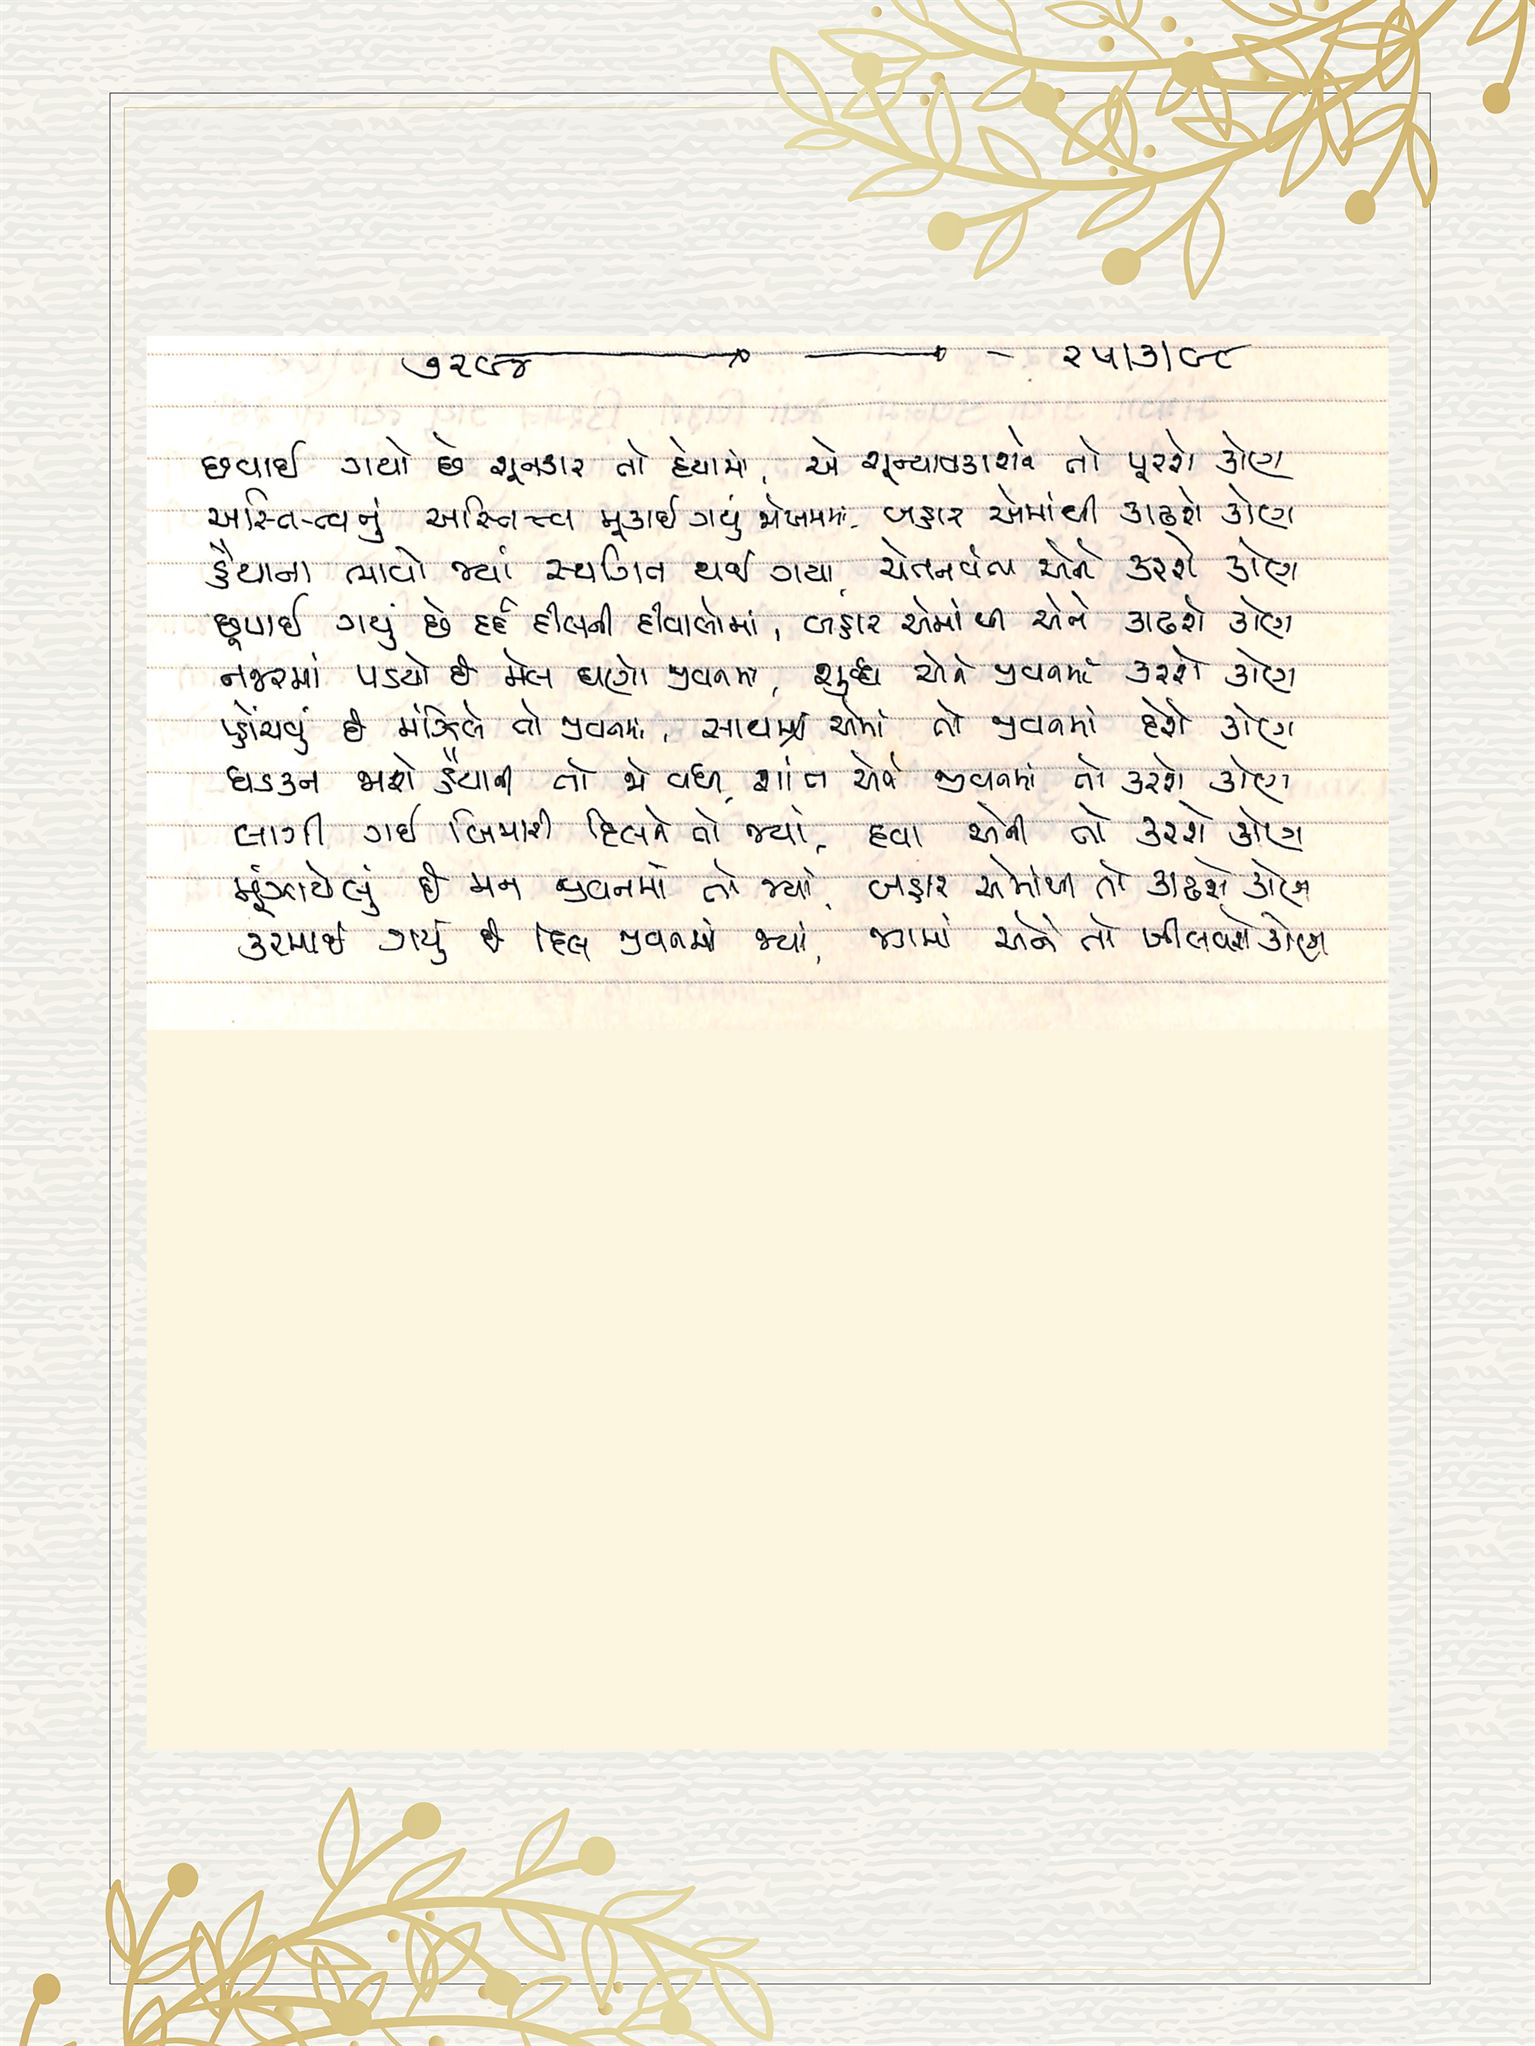 ૭૨૯૪ — — ૨૫/૩/૯૮
છવાઈ ગયો છે શૂનકાર તો હૈયામાં, એ શૂન્યાવકાશને તો પૂરશે કોણ
અસ્તિત્વનું અસ્તિત્ત્વ મૂકાઈ ગયું જોખમમાં, બહાર એમાંથી કાઢશે કોણ
હૈયાના ભાવો જ્યાં સ્થગિત થઈ ગયા, ચેતનવંતા એને કરશે કોણ
છૂપાઈ ગયું છે દર્દ દીલની દીવાલોમાં, બહાર એમાંથી એને કાઢશે કોણ
નજરમાં પડયો છે મેલ ઘણો જીવનમાં, શુદ્ધ એને જીવનમાં કરશે કોણ
પ્હોંચવું છે મંઝિલે તો જીવનમાં, સાથ એમાં તો જીવનમાં દેશે કોણ
ધડકન જાશે હૈયાની તો જો વધી, શાંત એને જીવનમાં તો કરશે કોણ
લાગી ગઈ બિમારી દિલને તો જ્યાં, દવા એની તો કરશે કોણ
મૂંઝાયેલું છે મન જીવનમાં તો જ્યાં, બહાર એમાંથી તો કાઢશે કોણ
કરમાઈ ગયું છે દિલ જીવનમાં જ્યાં, જગમાં એને તો ખીલવશે કોણ